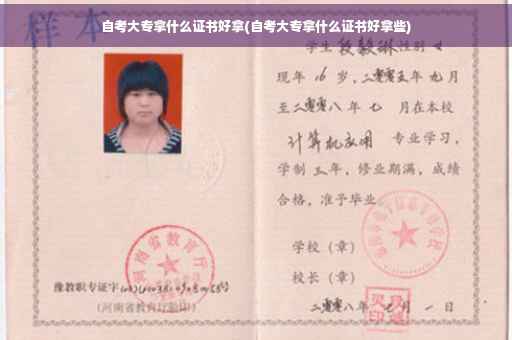 自考大专拿什么证书好拿(自考大专拿什么证书好拿些)
样本
学生 段毅琳 性别 女
现年 16 岁，二零零五年 九月
至二零零八年 七 月在本校
计算机应用 专业学习，
学制 三 年，修业期满，成绩
合格，准予毕业
学校（章）
校长（章）
二零零八年 七 月 一 日
河南省教育厅
豫教职专证字
(河南省教育厅验印)